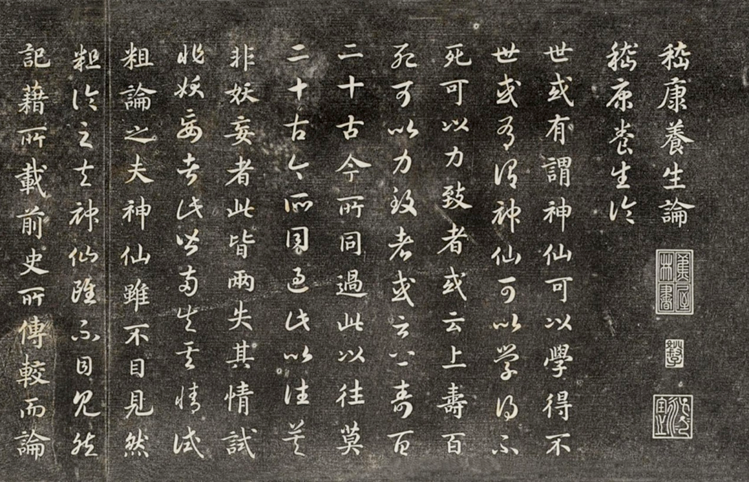 嵇康養生論
嵇康養生論
世或有謂神仙可以學得不
世或有謂神仙可以学得不
死可以力致者或云上壽百
死可以力致者或云上壽百
二十古今所同過此以往莫
二十古今所同過此以往莫
非妖妄者此皆兩失其情試
非妖妄者此皆兩失其情試
粗論之夫神仙雖不目見然
粗論之夫神仙雖不目見然
記藉所載前史所傳較而論